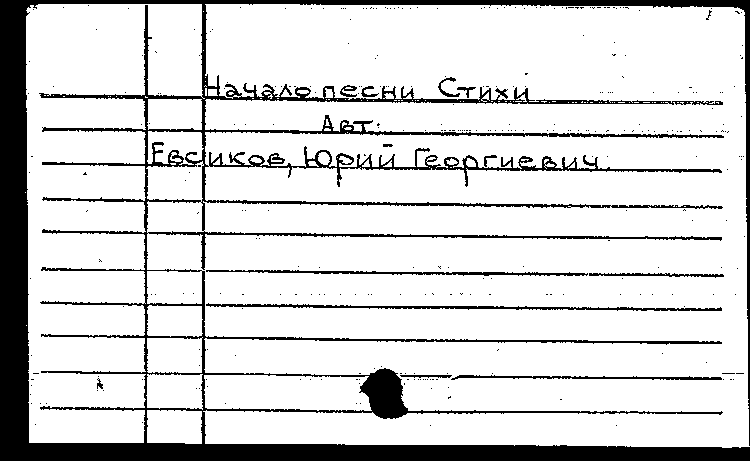 Начало песни Стихи
Авт:
Евсиков, Юрий Георгиевич.